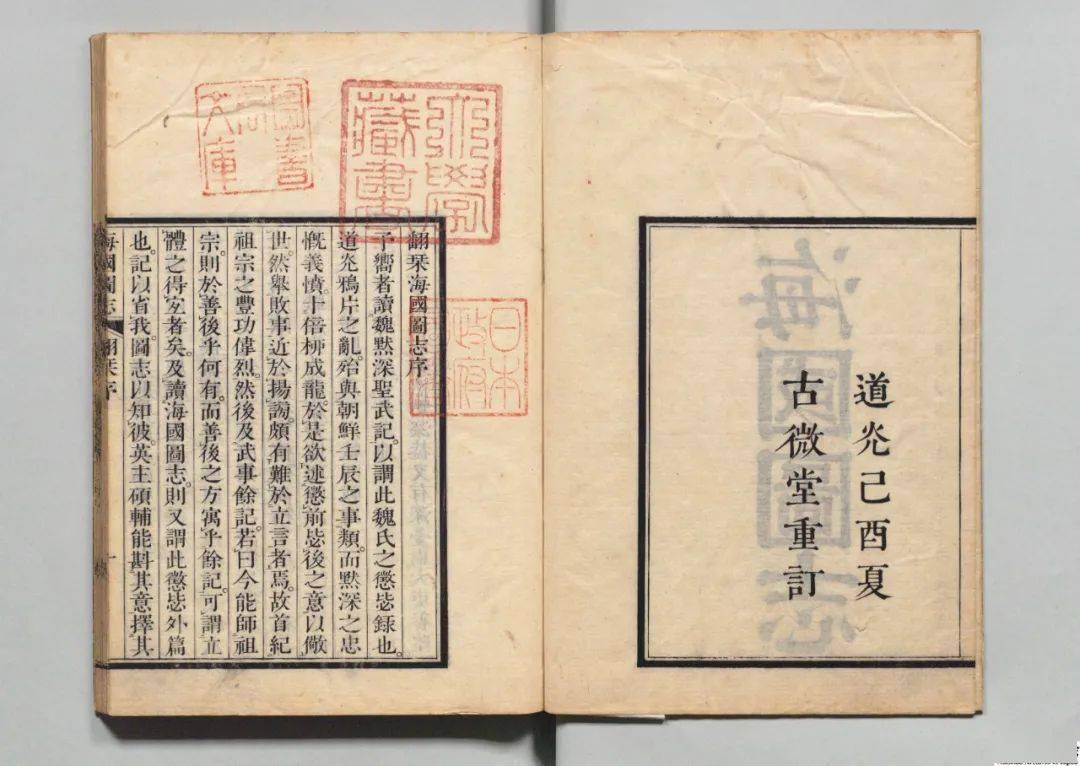 道光己酉夏
古微堂重訂
大學藏書
圖書局文庫
日本政府圖書
翻栞海國圖志序
予嚮者讀魏默深聖武記。以謂此魏氏之懲毖錄也。
道光鴉片之亂。殆與朝鮮壬辰之事類。而默深之忠
慨義憤。十倍栁成龍。於是欲述懲前毖後之意以儆
世。然舉敗事近於揚謁。頗有難於立言者焉。故首紀
祖宗之豐功偉烈。然後及武事餘記。若曰今能師祖
宗。則於善後乎何有。而善後之方寓乎餘記。可謂立
體之得宐者矣。及讀海國圖志。則又謂此懲毖外篇
也。記以省我。圖志以知彼。英主碩輔能斟其意擇其
海國圖志 翻栞序